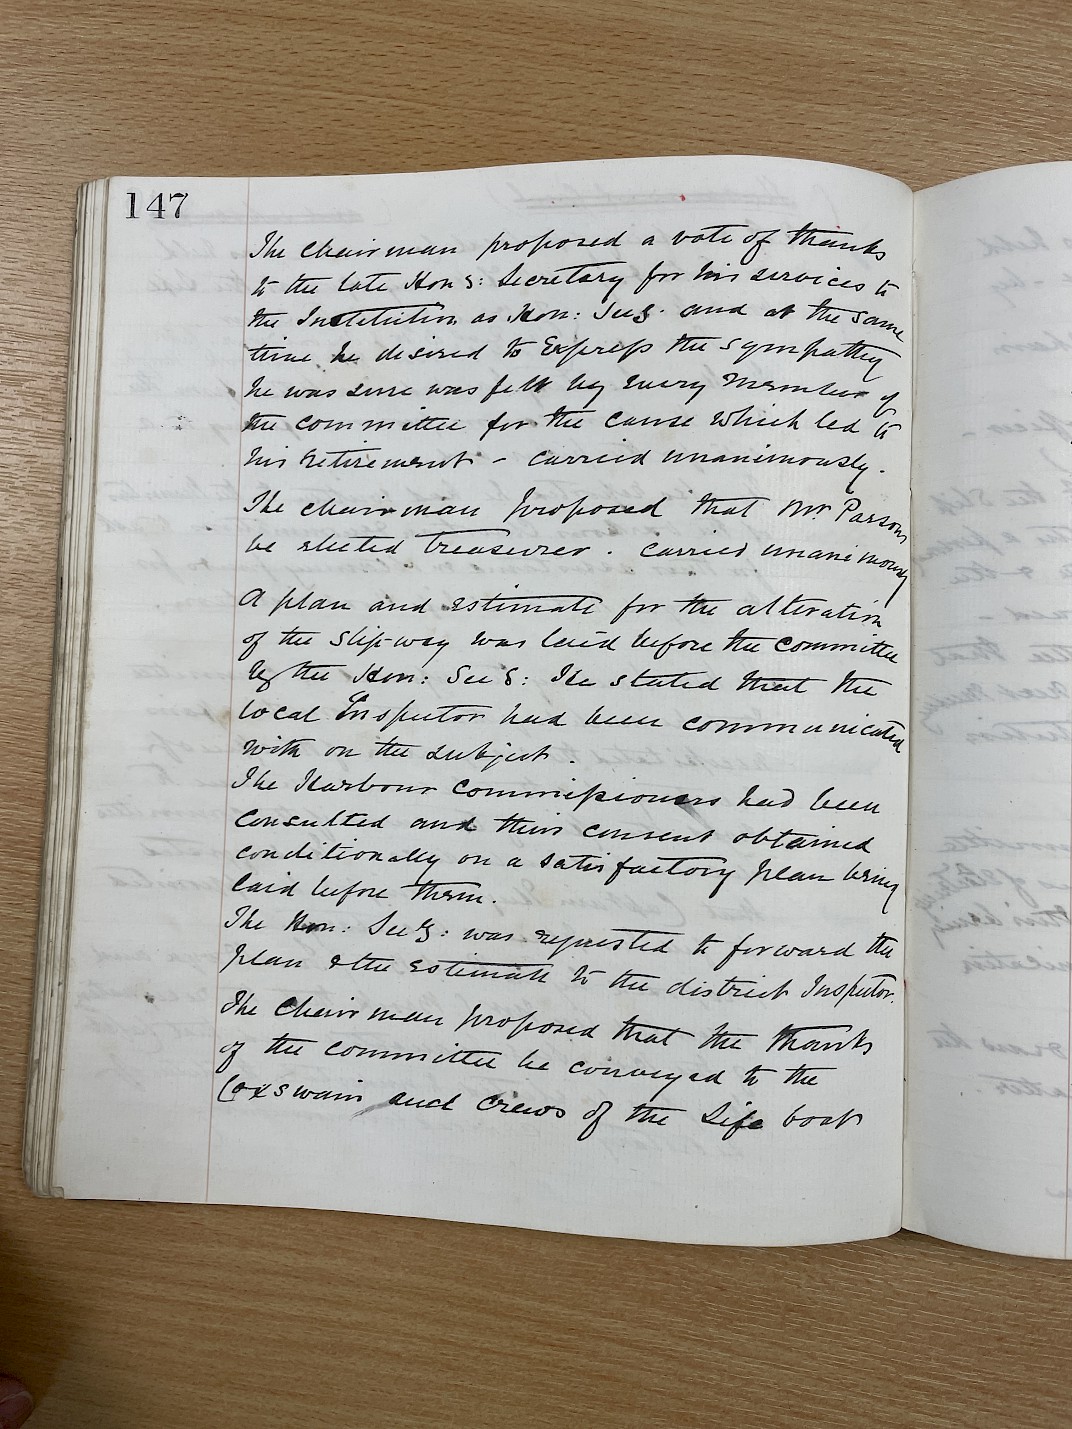 147
The chairman proposed a vote of thanks
to the late Hon S: Secretary for his services to
the Institution as Hon: Secy. and at the same
time he desired to Express the sympathy
he was sure was felt by every member of
the committee for the cause which led to
his retirement - carried unanimously.
The chairman proposed that Mr. Parsons
be elected treasurer. carried unanimously
A plan and estimate for the alteration
of the slip-way was laid before the committee
by the Hon: Secy: He stated that the
local Inspector had been communicated
with on the subject.
The Harbour commissioners had been
consulted and their consent obtained
conditionally on a satisfactory plan being
laid before them.
The Hon: Secy: was requested to forward the
plan & the estimate to the district Inspector.
The chairman proposed that the thanks
of the committee be conveyed to the
Coxswain and crews of the Life boat